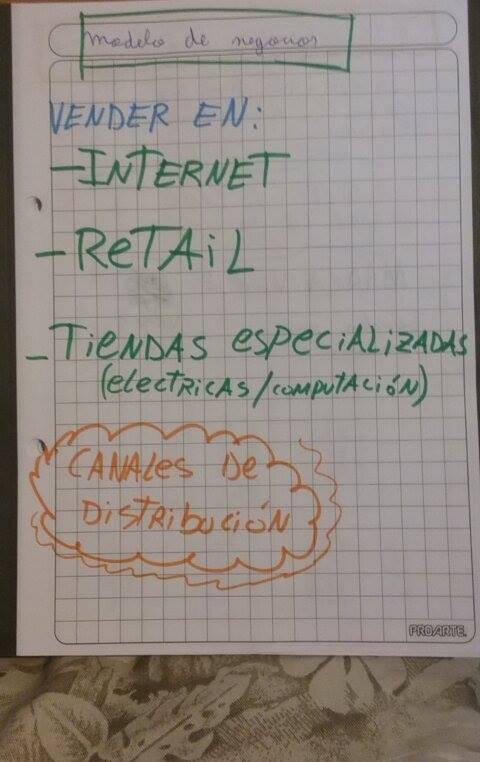 modelo de negocios
VENDER EN:
- INTERNET
- ReTAiL
- TiENDAS especiALizADAS
(electricas/computación)
CANALes De
DistribuciÓN
PROARTE.